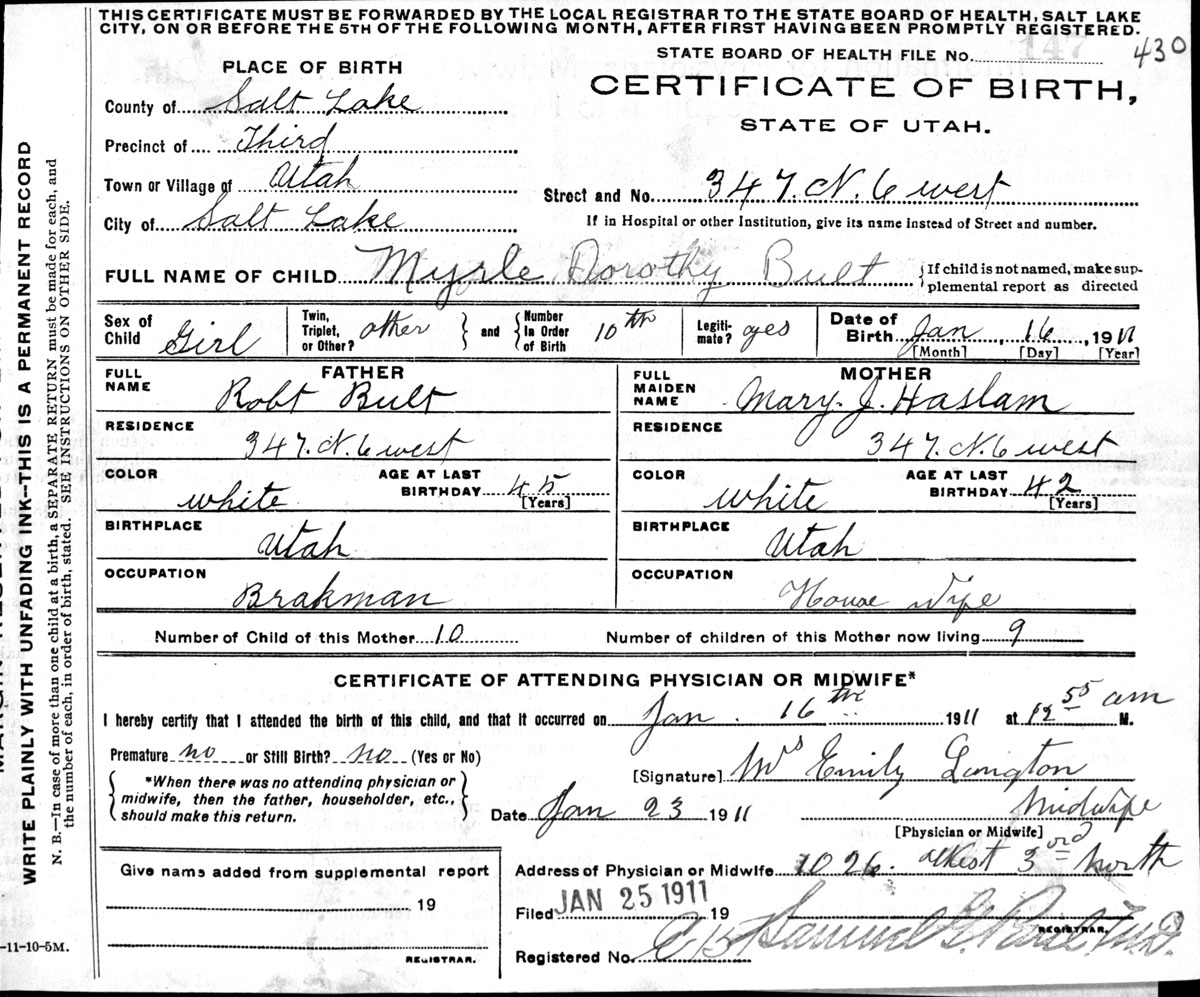 THIS CERTIFICATE MUST BE FORWARDED BY THE LOCAL REGISTRAR TO THE STATE BOARD OF HEALTH, SALT LAKE
CITY, ON OR BEFORE THE 5TH OF THE FOLLOWING MONTH, AFTER FIRST HAVING BEEN PROMPTLY REGISTERED.
STATE BOARD OF HEALTH FILE No. 430
147
PLACE OF BIRTH
CERTIFICATE OF BIRTH,
STATE OF UTAH.
County of Salt Lake
Precinct of Third
Town or Village of Utah
Street and No. 347. N. 6 west
City of Salt Lake
If in Hospital or other Institution, give its name instead of Street and number.
FULL NAME OF CHILD Myrle Dorothy Bult
{If child is not named, make sup-
plemental report as directed
Sex of Child Girl
Twin, Triplet, or Other? other } and { Number In Order of Birth 10th
Legiti-mate? yes
Date of Birth Jan 16, 1911
[Month] [Day] [Year]
FATHER
FULL NAME Robt Bult
MOTHER
FULL MAIDEN NAME Mary. J. Haslam
RESIDENCE 347. N. 6 west
RESIDENCE 347. N. 6 west
COLOR white AGE AT LAST BIRTHDAY 45 [Years]
COLOR white AGE AT LAST BIRTHDAY 42 [Years]
BIRTHPLACE Utah
BIRTHPLACE Utah
OCCUPATION Brakman
OCCUPATION House Wife
Number of Child of this Mother 10 Number of children of this Mother now living 9
CERTIFICATE OF ATTENDING PHYSICIAN OR MIDWIFE*
I hereby certify that I attended the birth of this child, and that it occurred on Jan. 16th 1911 at 12 55 am M.
Premature no or Still Birth? no (Yes or No)
[Signature] Mrs Emily Langton
{ *When there was no attending physician or
midwife, then the father, householder, etc.,
should make this return. }
Date Jan 23 1911 Midwife
[Physician or Midwife]
Address of Physician or Midwife 1026. West 3rd North
Give name added from supplemental report
19
REGISTRAR.
Filed JAN 25 1911 19
Samuel G. Paul M.D.
REGISTRAR.
Registered No.
-11-10-5M.
WRITE PLAINLY WITH UNFADING INK--THIS IS A PERMANENT RECORD.
N. B.—In case of more than one child at a birth, a SEPARATE RETURN must be made for each, and
the number of each, in order of birth, stated. SEE INSTRUCTIONS ON OTHER SIDE.